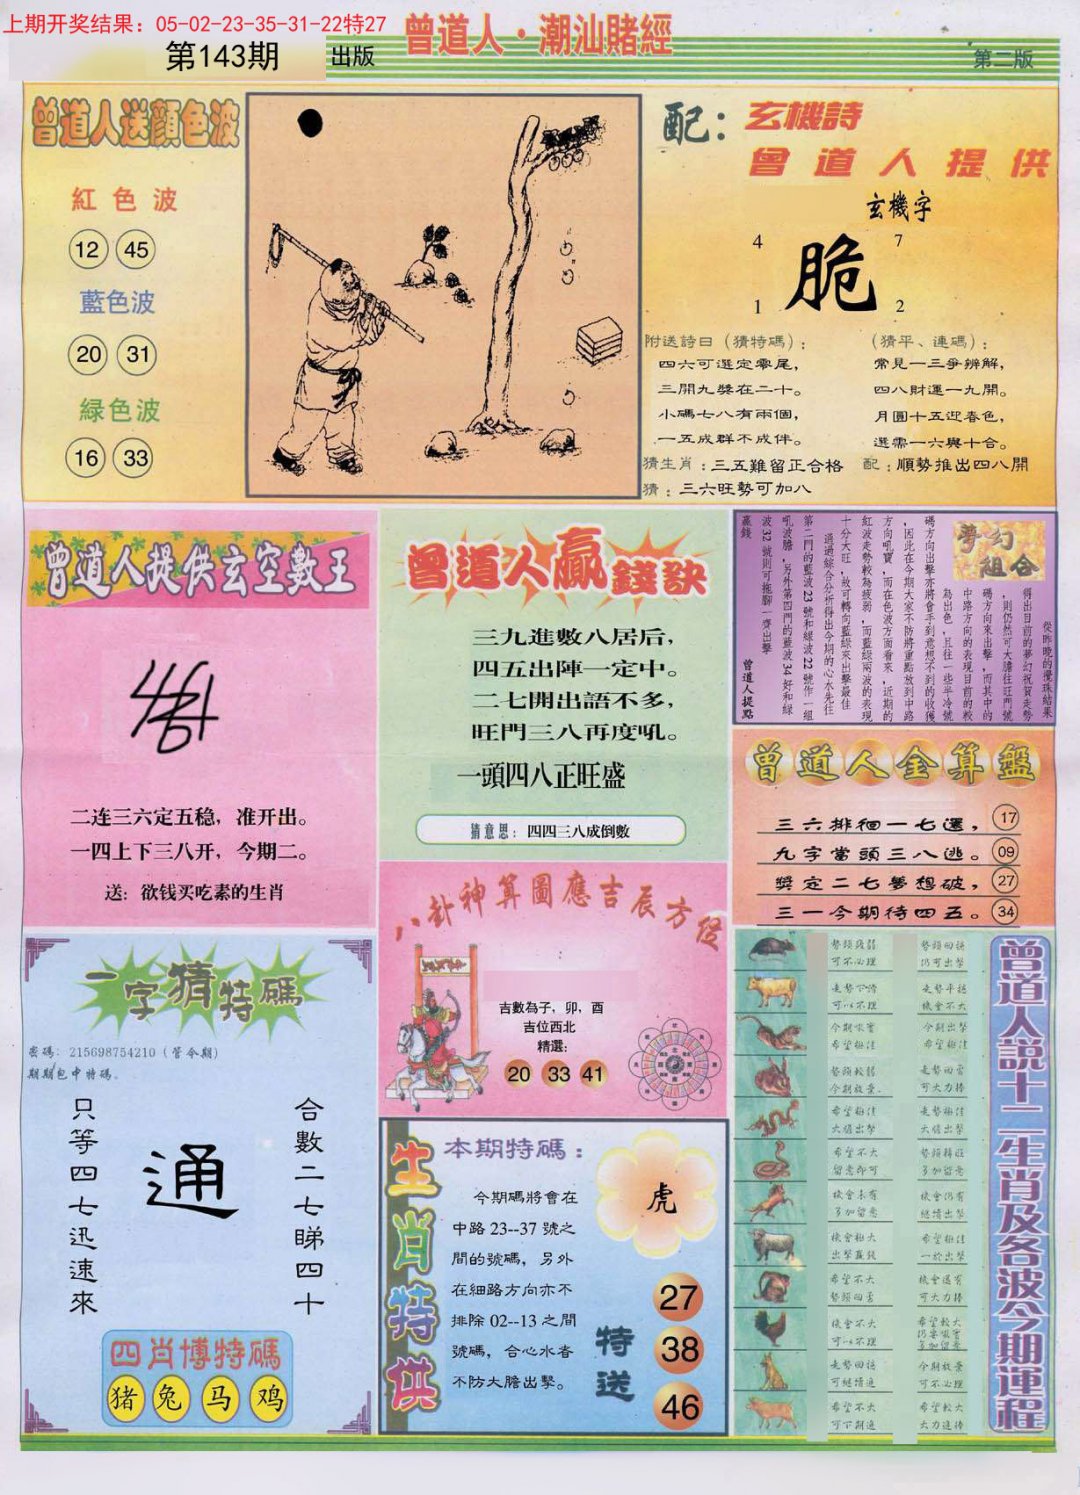 上期开奖结果：05-02-23-35-31-22特27
曾道人·潮汕賭經
第143期
出版
第二版
曾道人送顏色波
紅色波
12 45
藍色波
20 31
緑色波
16 33
配：玄機詩
曾道人提供
玄機字
4 7
脆
1 2
附送詩曰（猜特碼）：
四六可選定零尾，
三開九獎在二十。
小碼七八有兩個，
一五成群不成伴。
（猜平、連碼）：
常見一三爭辨解，
四八財運一九開。
月圓十五迎春色，
選需一六與十合。
猜生肖：三五難留正合格
配：順勢推出四八開
猜：三六旺勢可加八
曾道人提供玄空數王
二连三六定五稳，准开出。
一四上下三八开，今期二。
送：欲钱买吃素的生肖
曾道人贏錢訣
三九進數八居后，
四五出陣一定中。
二七開出語不多，
旺門三八再度吼。
一頭四八正旺盛
猜意思：四四三八成倒數
夢幻組合
從昨晚的攪珠結果
得出目前的夢幻祝賀走勢
，則仍然可大膽往旺門號
碼方向來出擊，而其中的
中路方向的表現目前的較
為出色，且往一些半冷號
碼方向出擊亦將會手到意想不到的收獲
，因此在今期大家不防將重點放到中路
方向吼寶，而在色波方面看來，近期的
紅波走勢較為疲弱，而藍綠兩波的表現
十分大旺，故可轉向藍綠來出擊最佳
通過綜合分析得出今期的心水先往
第二門的藍波23號和綠波22號作一組
吼波膽，另外第四門的藍波34好和綠
波32號則可拖腳一齊出擊
贏錢
曾道人提點
曾道人全算盤
三六排徊一七選，17
九字當頭三八逃。09
獎定二七夢想破，27
三一今期待四五。34
八卦神算圖應吉辰方位
吉數為子，卯，酉
吉位西北
精選：
20 33 41
一字猜特碼
密碼：215698754210（管今期）
期期包中特碼。
只等四七迅速來
通
合數二七睇四十
四肖博特碼
猪 兔 马 鸡
生肖特供
本期特碼：
今期碼將會在
中路23--37號之
間的號碼，另外
在細路方向亦不
排除02--13之間
號碼，合心水者
不防大膽出擊。
虎
特送
27
38
46
曾道人說十二生肖及各波今期運程